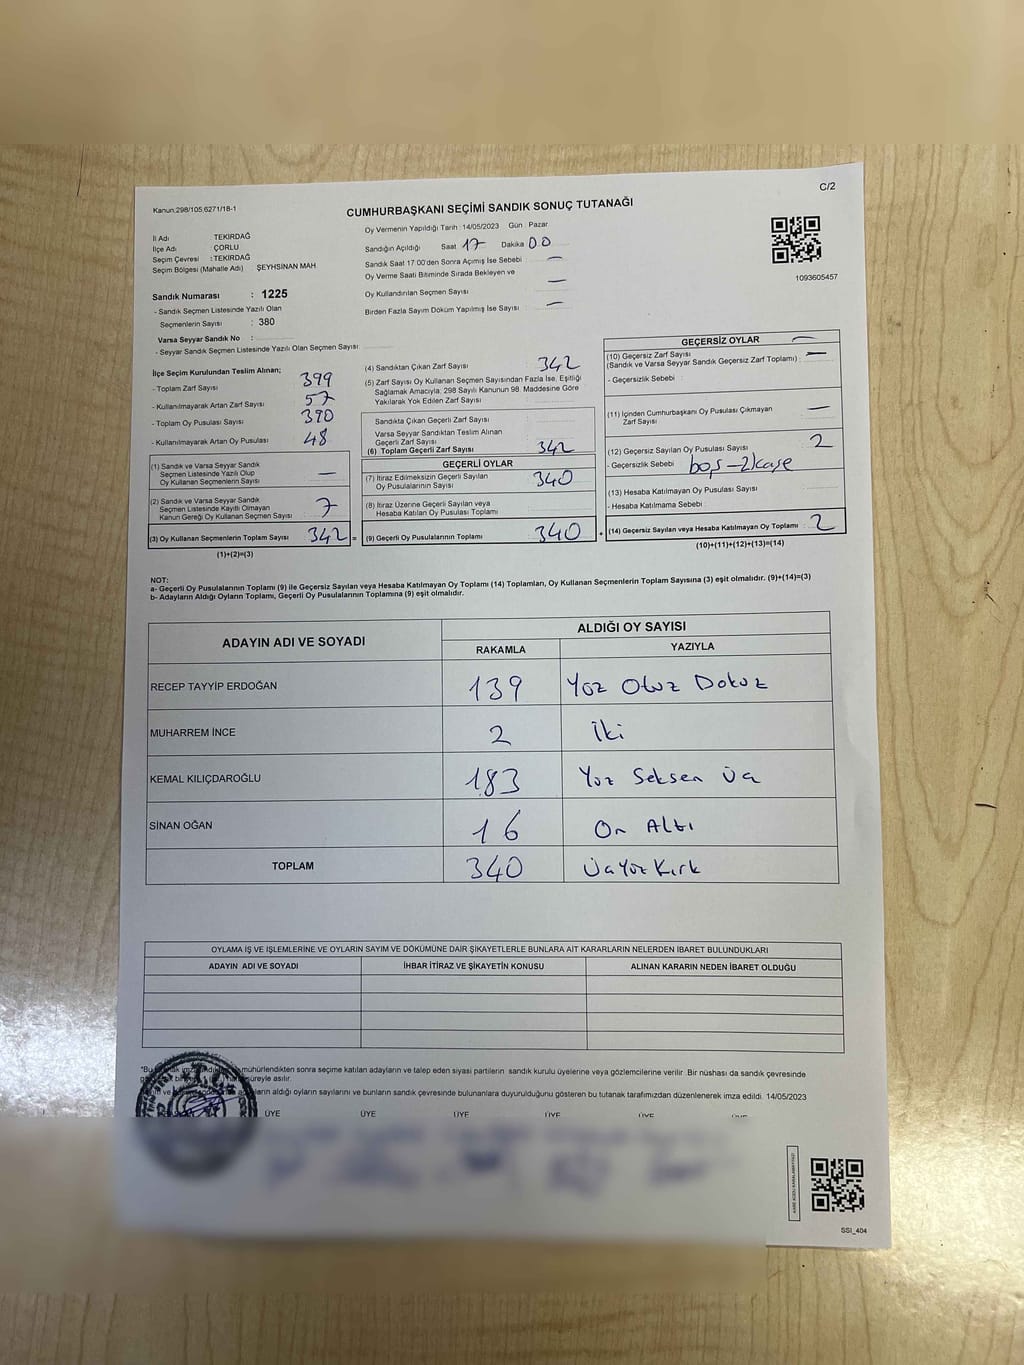 C/2
Kanun;298/105,6271/18-1
CUMHURBAŞKANI SEÇİMİ SANDIK SONUÇ TUTANAĞI
İl Adı : TEKİRDAĞ
İlçe Adı : ÇORLU
Seçim Çevresi : TEKİRDAĞ
Seçim Bölgesi (Mahalle Adı) ŞEYHSİNAN MAH.
Oy Vermenin Yapıldığı Tarih :14/05/2023 Gün : Pazar
Sandığın Açıldığı Saat 17 Dakika 00
Sandık Saat 17:00'den Sonra Açılmış İse Sebebi : —
Oy Verme Saati Bitiminde Sırada Bekleyen ve
Oy Kullandırılan Seçmen Sayısı : —
Birden Fazla Sayım Döküm Yapılmış İse Sayısı : —
1093605457
Sandık Numarası : 1225
- Sandık Seçmen Listesinde Yazılı Olan
Seçmenlerin Sayısı : 380
Varsa Seyyar Sandık No :
- Seyyar Sandık Seçmen Listesinde Yazılı Olan Seçmen Sayısı:
İlçe Seçim Kurulundan Teslim Alınan;
- Toplam Zarf Sayısı : 399
- Kullanılmayarak Artan Zarf Sayısı : 57
- Toplam Oy Pusulası Sayısı : 390
- Kullanılmayarak Artan Oy Pusulası : 48
(1) Sandık ve Varsa Seyyar Sandık
Seçmen Listesinde Yazılı Olup
Oy Kullanan Seçmenlerin Sayısı : —
(2) Sandık ve Varsa Seyyar Sandık
Seçmen Listesinde Kayıtlı Olmayan
Kanun Gereği Oy Kullanan Seçmen Sayısı : 7
(3) Oy Kullanan Seçmenlerin Toplam Sayısı : 342 =
(1)+(2)=(3)
(4) Sandıktan Çıkan Zarf Sayısı : 342
(5) Zarf Sayısı Oy Kullanan Seçmen Sayısından Fazla İse, Eşitliği
Sağlamak Amacıyla; 298 Sayılı Kanunun 98. Maddesine Göre
Yakılarak Yok Edilen Zarf Sayısı :
Sandıkta Çıkan Geçerli Zarf Sayısı :
Varsa Seyyar Sandıktan Teslim Alınan
Geçerli Zarf Sayısı :
(6) Toplam Geçerli Zarf Sayısı : 342
GEÇERLİ OYLAR
(7) İtiraz Edilmeksizin Geçerli Sayılan
Oy Pusulalarının Sayısı : 340
(8) İtiraz Üzerine Geçerli Sayılan veya
Hesaba Katılan Oy Pusulası Toplamı :
(9) Geçerli Oy Pusulalarının Toplamı : 340 +
GEÇERSİZ OYLAR —
(10) Geçersiz Zarf Sayısı
(Sandık ve Varsa Seyyar Sandık Geçersiz Zarf Toplamı) : —
- Geçersizlik Sebebi :
(11) İçinden Cumhurbaşkanı Oy Pusulası Çıkmayan
Zarf Sayısı : —
(12) Geçersiz Sayılan Oy Pusulası Sayısı : 2
- Geçersizlik Sebebi : boş - 2 kaşe
(13) Hesaba Katılmayan Oy Pusulası Sayısı :
- Hesaba Katılmama Sebebi :
(14) Geçersiz Sayılan veya Hesaba Katılmayan Oy Toplamı : 2
(10)+(11)+(12)+(13)=(14)
NOT:
a- Geçerli Oy Pusulalarının Toplamı (9) ile Geçersiz Sayılan veya Hesaba Katılmayan Oy Toplamı (14) Toplamları, Oy Kullanan Seçmenlerin Toplam Sayısına (3) eşit olmalıdır. (9)+(14)=(3)
b- Adayların Aldığı Oyların Toplamı, Geçerli Oy Pusulalarının Toplamına (9) eşit olmalıdır.
ADAYIN ADI VE SOYADI
ALDIĞI OY SAYISI
RAKAMLA YAZIYLA
RECEP TAYYİP ERDOĞAN 139 Yüz Otuz Dokuz
MUHARREM İNCE 2 İki
KEMAL KILIÇDAROĞLU 183 Yüz Seksen Üç
SİNAN OĞAN 16 On Altı
TOPLAM 340 Üç Yüz Kırk
OYLAMA İŞ VE İŞLEMLERİNE VE OYLARIN SAYIM VE DÖKÜMÜNE DAİR ŞİKAYETLERLE BUNLARA AİT KARARLARIN NELERDEN İBARET BULUNDUKLARI
ADAYIN ADI VE SOYADI İHBAR İTİRAZ VE ŞİKAYETİN KONUSU ALINAN KARARIN NEDEN İBARET OLDUĞU
mühürlendikten sonra seçime katılan adayların ve talep eden siyasi partilerin sandık kurulu üyelerine veya gözlemcilerine verilir. Bir nüshası da sandık çevresinde
süreyle asılır.
aldığı oyların sayılarını ve bunların sandık çevresinde bulunanlara duyurulduğunu gösteren bu tutanak tarafımızdan düzenlenerek imza edildi. 14/05/2023
ÜYE ÜYE ÜYE ÜYE ÜYE
SSI_404